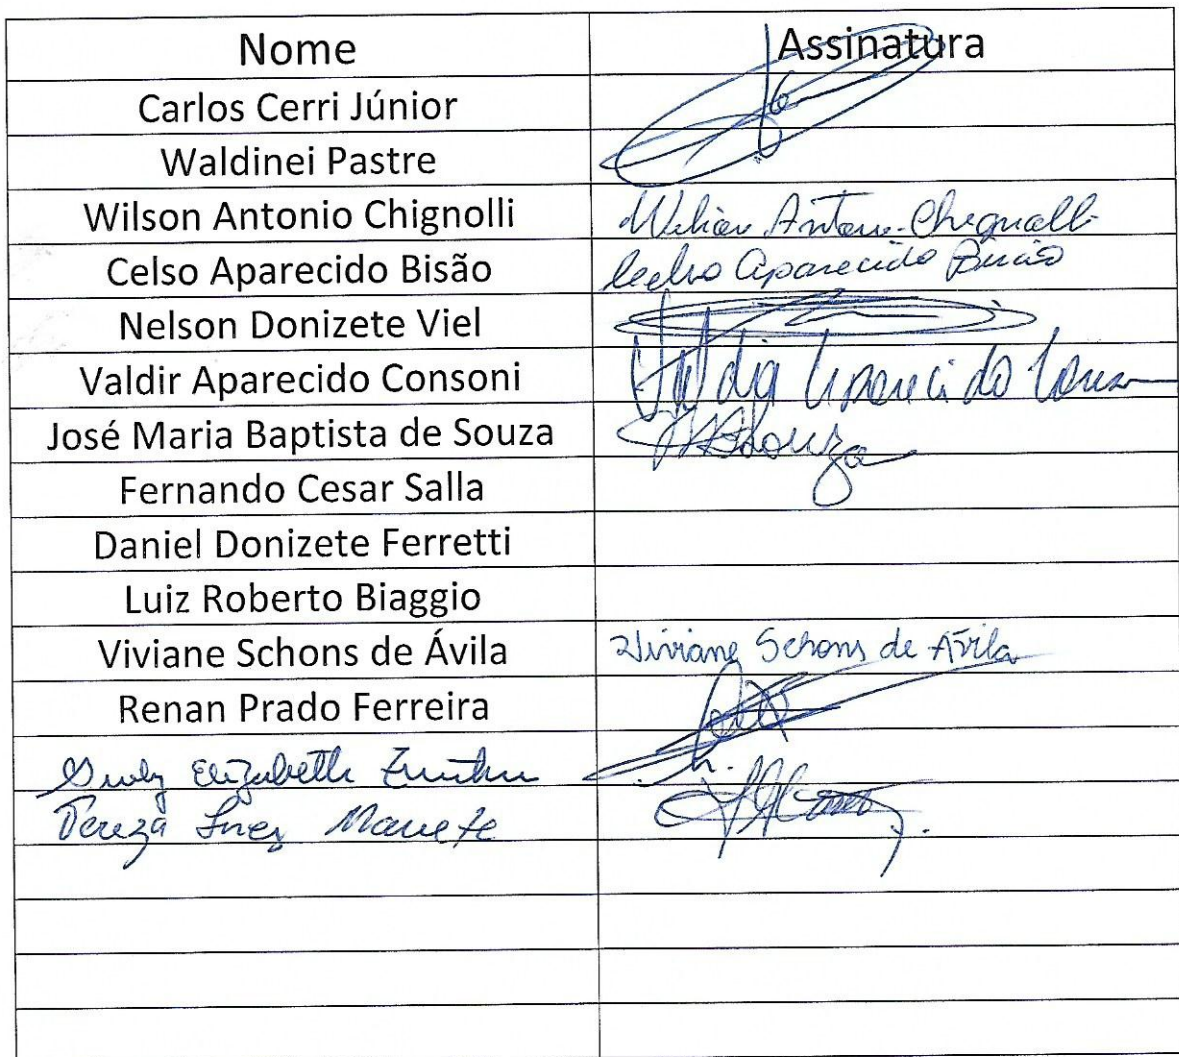 Nome Assinatura
Carlos Cerri Júnior
Waldinei Pastre
Wilson Antonio Chignolli Wilson Antonio Chignolli
Celso Aparecido Bisão Celso Aparecido Bisão
Nelson Donizete Viel
Valdir Aparecido Consoni Valdir Aparecido
José Maria Baptista de Souza Souza
Fernando Cesar Salla
Daniel Donizete Ferretti
Luiz Roberto Biaggio
Viviane Schons de Ávila Viviane Schons de Ávila
Renan Prado Ferreira
Elizabeth
Tereza Inez